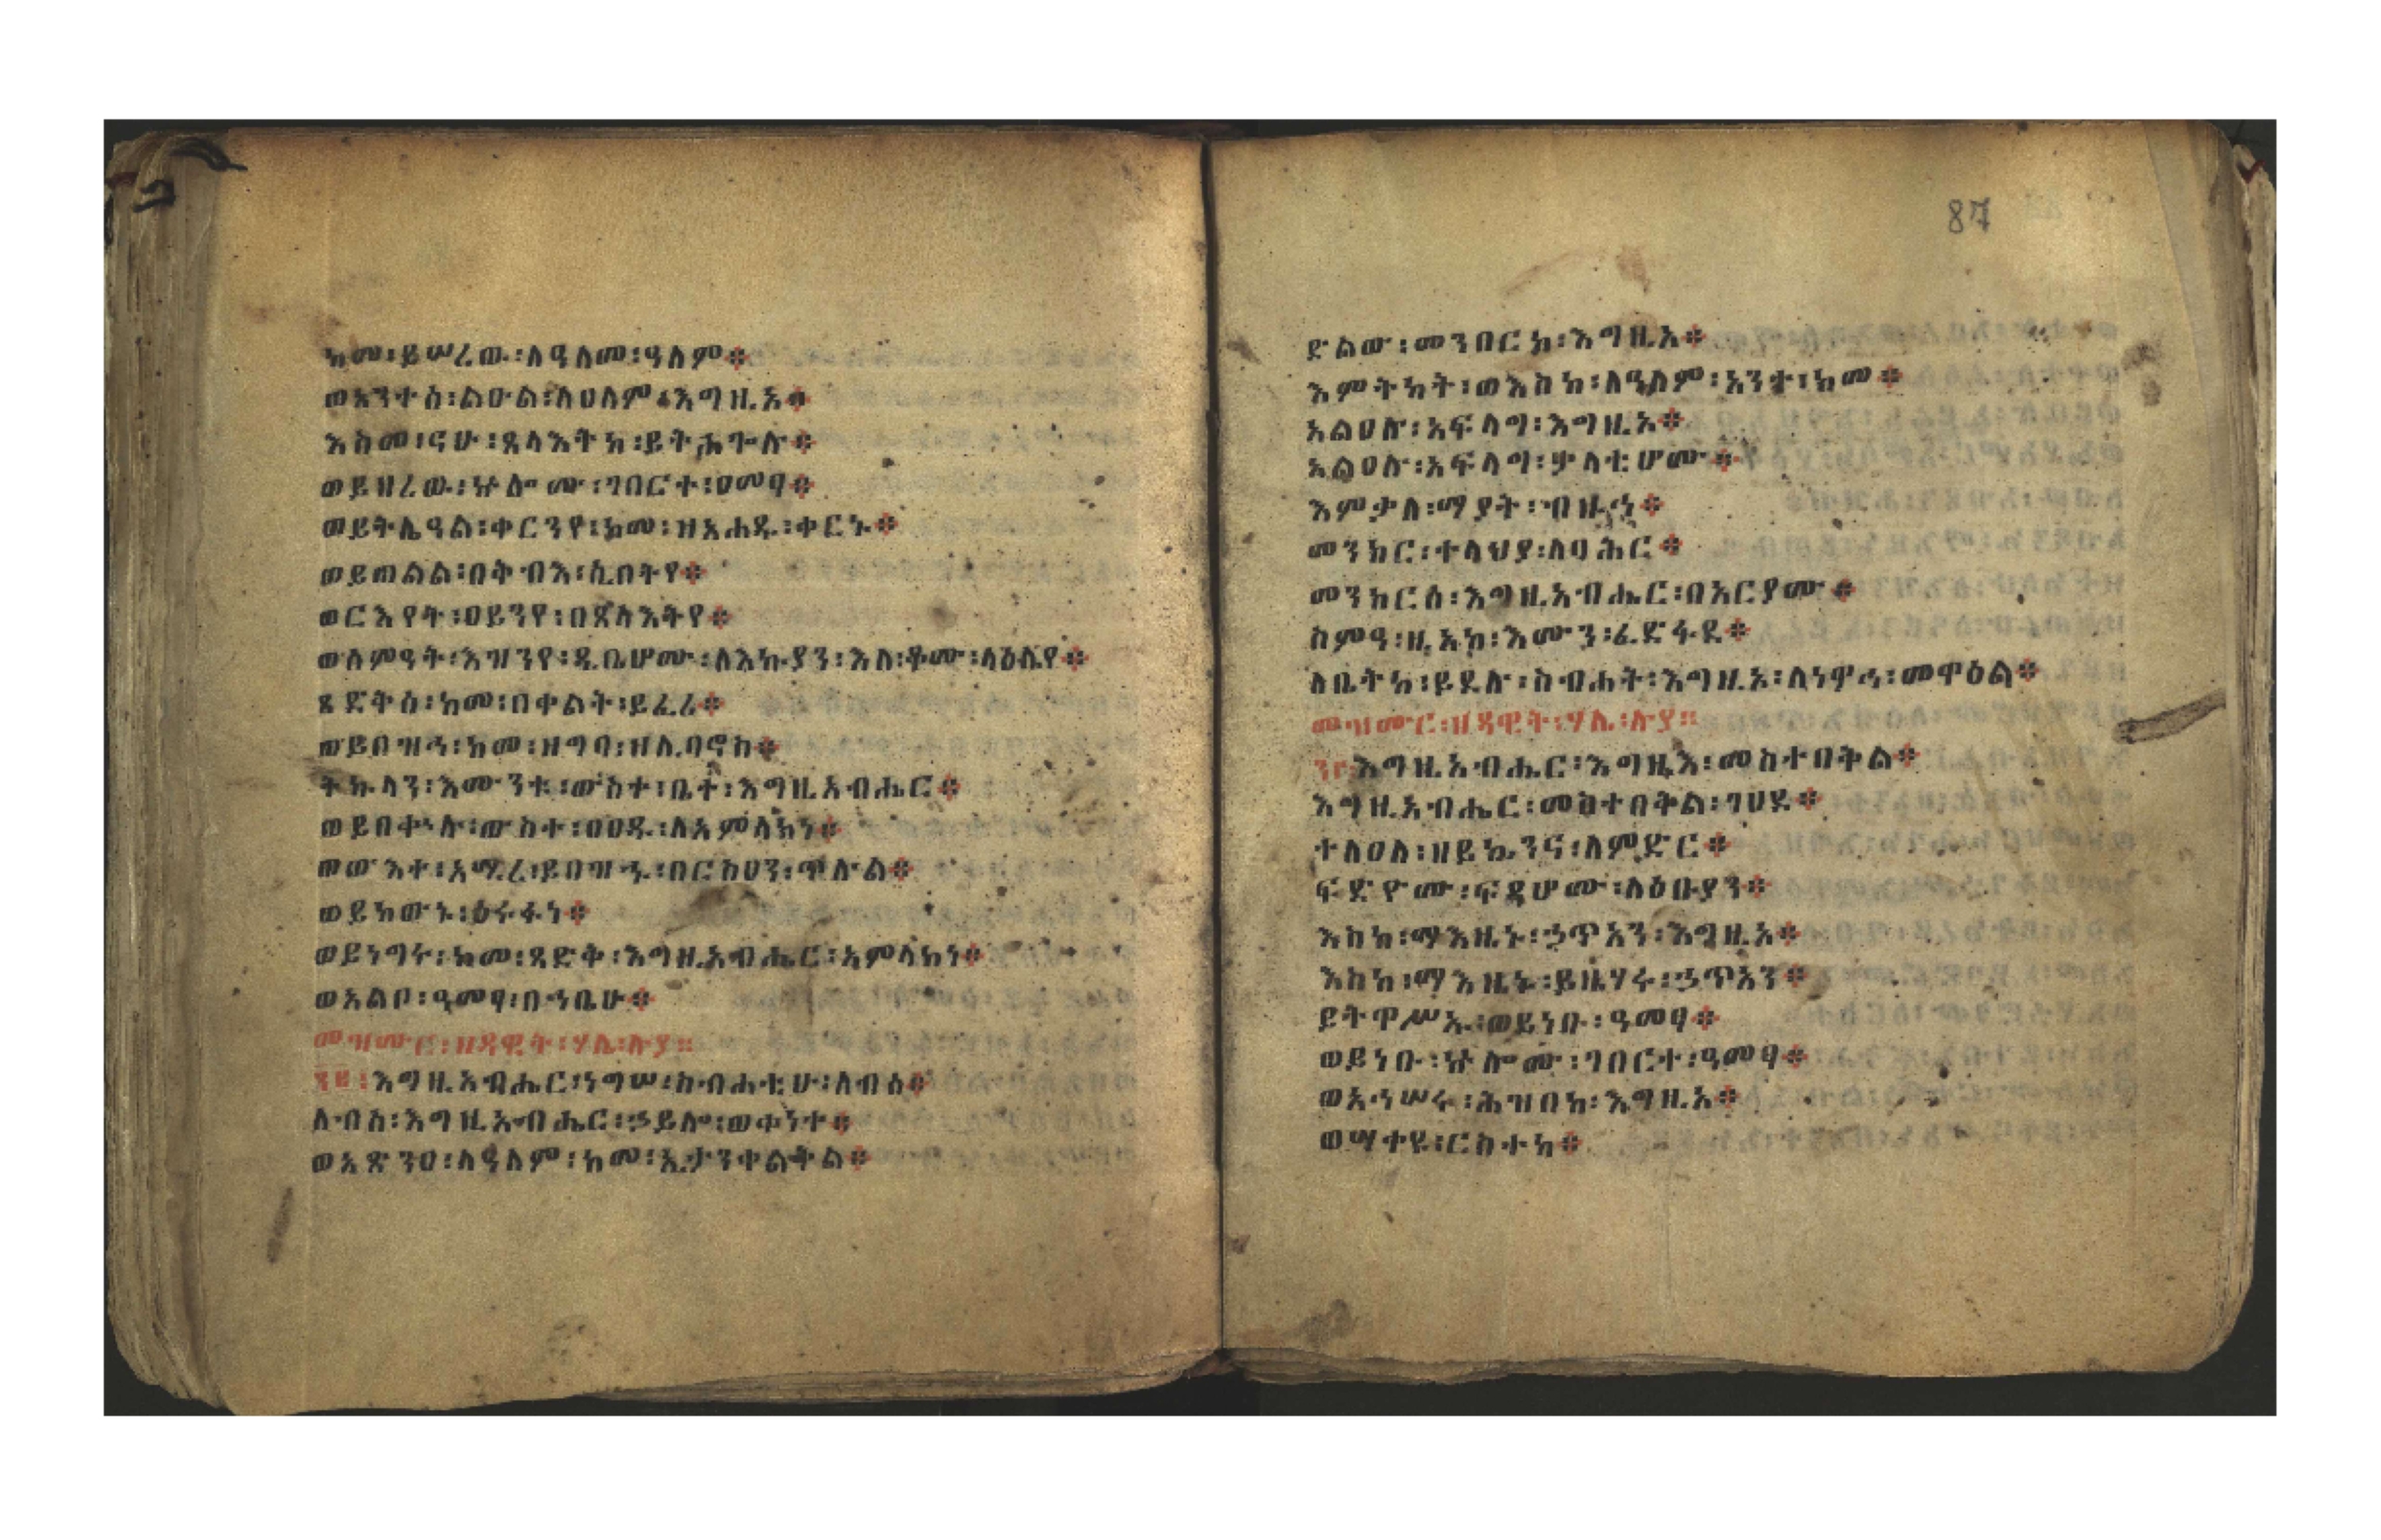 ከመ፡ይሠረው፡ለዓለመ፡ዓለም።
ወአንተሰ፡ልዑል፡ለዐለም፡እግዚአ።
እስመ፡ናሁ፡ጸላእትከ፡ይትሐጐሉ።
ወይዘረው፡ኵሎሙ፡ገበርተ፡ዐመፃ።
ወይትሌዓል፡ቀርንየ፡ከመ፡ዝአሐዱ፡ቀርኑ።
ወይጠልል፡በቅብእ፡ሲበትየ።
ወርእየት፡ዐይንየ፡በጸላእትየ።
ወሰምዓት፡እዝንየ፡ዲቤሆሙ፡ለእኩያን፡እለ፡ቆሙ፡ላዕሌየ።
ጻድቅሰ፡ከመ፡በቀልት፡ይፈሪ።
ወይበዝኅ፡ከመ፡ዘግባ፡ዘሊባኖስ።
ትኩላን፡እሙንቱ፡ውስተ፡ቤተ፡እግዚአብሔር።
ወይበቍሉ፡ውስተ፡ዐዐዱ፡ለአምላክነ።
ወውእተ፡አሚረ፡ይበዝኁ፡በርስዐን፡ጥሉል።
ወይከውኑ፡ዕሩፋነ።
ወይነግሩ፡ከመ፡ጻድቅ፡እግዚአብሔር፡አምላክነ።
ወአልቦ፡ዓመፃ፡በኀቤሁ።
መዝሙር፡ዘዳዊት፡ሃሌ፡ሉያ።
፺፪፡እግዚአብሔር፡ነግሠ፡ስብሐቲሁ፡ለብሰ።
ለብሰ፡እግዚአብሔር፡ኃይሎ፡ወቀነተ።
ወአጽንዐ፡ለዓለም፡ከመ፡ኢታንቀልቅል።
87
ድልው፡መንበርከ፡እግዚአ።
እምትካት፡ወእስከ፡ለዓለም፡አንተ፡ከመ።
አልዐሉ፡አፍላግ፡እግዚአ።
አልዐሉ፡አፍላግ፡ቃላቲሆሙ።
እምቃለ፡ማያት፡ብዙኅ።
መንክር፡ተላህያ፡ለባሕር።
መንክርሰ፡እግዚአብሔር፡በአርያሙ።
ስምዓ፡ዚአከ፡እሙን፡ፈድፋደ።
ለቤትከ፡ይደሉ፡ስብሐት፡እግዚአ፡ለነዋኅ፡መዋዕል።
መዝሙር፡ዘዳዊት፡ሃሌ፡ሉያ።
፺፫፡እግዚአብሔር፡እግዚእ፡መስተበቅል።
እግዚአብሔር፡መስተበቅል፡ገሀደ።
ተለዐለ፡ዘይኴንና፡ለምድር።
ፍድዮሙ፡ፍዳሆሙ፡ለዕቡያን።
እስከ፡ማእዜኑ፡ኃጥአን፡እግዚአ።
እስከ፡ማእዜኑ፡ይዜሃሩ፡ኃጥአን።
ይትዋሥኡ፡ወይነቡ፡ዓመፃ።
ወይነቡ፡ኵሎሙ፡ገበርተ፡ዓመፃ።
ወአኅሠሩ፡ሕዝበከ፡እግዚአ።
ወሣቀዩ፡ርስተከ።